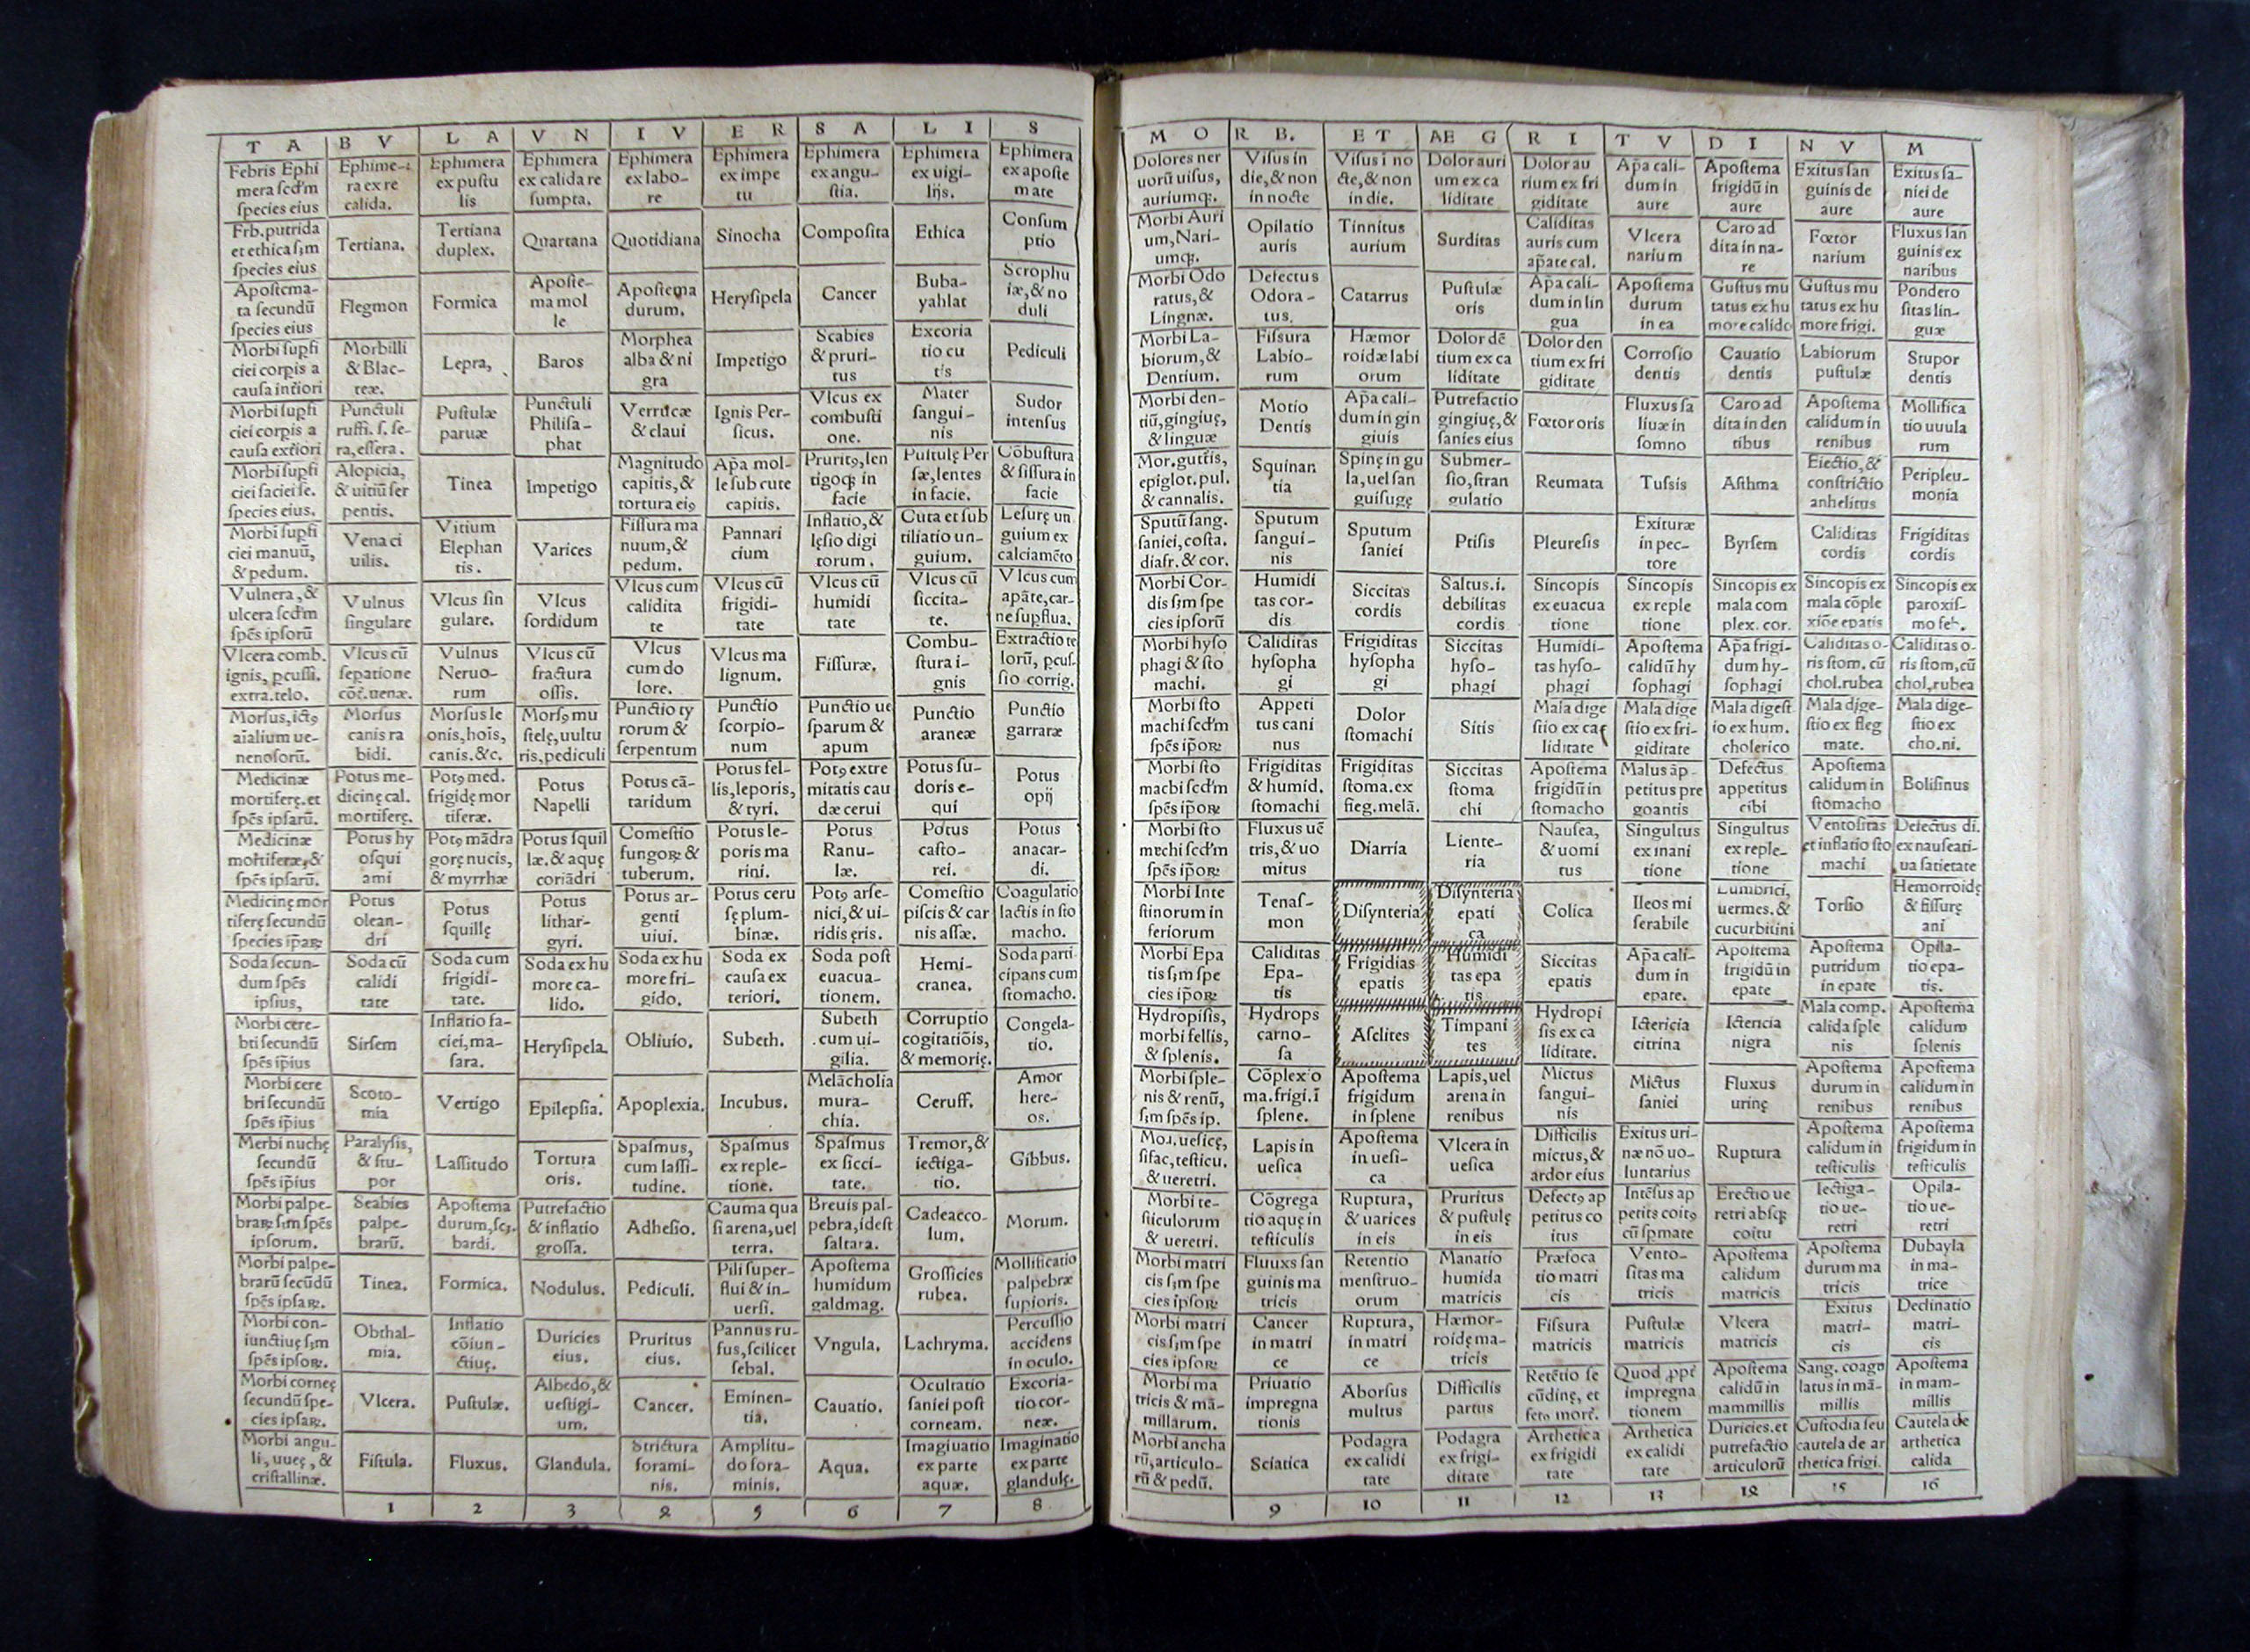 T A B V L A V N I V E R S A L I S
Febris Ephi mera scd'm species eius Ephime- ra ex re calida. Ephimera ex pustu lis Ephimera ex calida re sumpta. Ephimera ex labo- re Ephimera ex impe tu Ephimera ex angu- stia. Ephimera ex uigi- lijs. Ephimera ex aposte mate
Frb. putrida et ethica sꝫm species eius Tertiana. Tertiana duplex. Quartana Quotidiana Sinocha Composita Ethica Consum ptio
Apostema- ta secundū species eius Flegmon Formica Aposte- ma mol le Apostema durum. Herysipela Cancer Buba- yahlat Scrophu læ, & no duli
Morbi supfi ciei corpis a causa interiori Morbilli & Blac- teæ. Lepra, Baros Morphea alba & ni gra Impetigo Scabies & pruri- tus Excoria tio cu tis Pediculi
Morbi supfi ciei corpis a causa exteriori Punctuli ruffi. s. se- ra, essera. Pustulæ paruæ Punctuli Philisa- phat Verrucæ & claui Ignis Per- sicus. Vlcus ex combusti one. Mater sangui- nis Sudor intensus
Morbi supfi ciei faciei se. species eius. Alopicia, & uitiū ser pentis. Tinea Impetigo Magnitudo capitis, & tortura eiꝰ Ap̄a mol- le sub cute capitis. Pruritꝰ, len tigoqꝫ in facie Pustulę Per sæ, lentes in facie. Cōbustura & fissura in facie
Morbi supfi ciei manuū, & pedum. Vena ci uilis. Vitium Elephan tis. Varices Fissura ma nuum, & pedum. Pannari cium Inflatio, & lęsio digi torum. Cuta et sub tiliatio un- guium. Lesurę un guium ex calciamēto
Vulnera, & ulcera scd'm spēs ipsorū Vulnus singulare Vlcus sin gulare. Vlcus sordidum Vlcus cum calidita te Vlcus cū frigidi- tate Vlcus cū humidi tate Vlcus cū siccita- te. Vlcus cum apāte, car- ne supflua.
Vlcera comb. ignis, pcussi. extra. telo. Vlcus cū sepatione cōt. uenæ. Vulnus Neruo- rum Vlcus cū fractura ossis. Vlcus cum do lore. Vlcus ma lignum. Fissuræ, Combu- stura i- gnis Extractio te lorū, pcus- sio corrig.
Morsus, ictꝰ aīalium ue- nenosorū. Morsus canis ra bidi. Morsus le onis, hois, canis. &c. Morsꝰ mu stelę, uultu ris, pediculi Punctio ty rorum & serpentum Punctio scorpio- num Punctio ue sparum & apum Punctio araneæ Punctio garraræ
Medicinæ mortiferę. et spēs ipsarū. Potus me- dicinę cal. mortiferę. Potꝰ med. frigidę mor tiferæ. Potus Napelli Potus cā- taridum Potus fel- lis, leporis, & tyri. Potꝰ extre mitatis cau dæ cerui Potus su- doris e- qui Potus opij
Medicinæ mortiferæ, & spēs ipsarū. Potus hy osqui ami Potꝰ mādra gorę nucis, & myrrhæ Potus squil læ. & aquę coriādri Comestio fungoꝝ & tuberum. Potus le- poris ma rini. Potus Ranu- læ. Potus casto- rei. Potus anacar- di.
Medicinę mor tiferę secundū species ipaꝝ Potus olean- dri Potus squillę Potus lithar- gyri. Potus ar- genti uiui. Potus ceru sę plum- binæ. Potꝰ arse- nici, & ui- ridis ęris. Comestio piscis & car nis assæ. Coagulatio lactis in sto macho.
Soda secun- dum spēs ipsius, Soda cū calidi tate Soda cum frigidi- tate. Soda ex hu more ca- lido. Soda ex hu more fri- gido. Soda ex causa ex teriori. Soda post euacua- tionem. Hemi- cranea. Soda parti cipans cum stomacho.
Morbi cere- bri secundū spēs ipius Sirsem Inflatio fa- ciei, ma- sara. Herysipela. Obliuio. Subeth. Subeth cum ui- gilia. Corruptio cogitatiōis, & memorię. Congela- tio.
Morbi cere bri secundū spēs ipius Scoto- mia Vertigo Epilepsia. Apoplexia. Incubus. Melācholia mura- chia. Ceruff. Amor here- os.
Merbi nuchę secundū spēs ipius Paralysis, & stu- por Lassitudo Tortura oris. Spasmus, cum lassi- tudine. Spasmus ex reple- tione. Spasmus ex sicci- tate. Tremor, & iectiga- tio. Gibbus.
Morbi palpe- braꝝ sꝫm spēs ipsorum. Scabies palpe- brarū. Apostema durum, scꝫ. bardi. Putrefactio & inflatio grossa. Adhesio. Cauma qua si arena, uel terra. Breuis pal- pebra, idest saltara. Cadeacco- lum. Morum.
Morbi palpe- brarū secūdū spēs ipsaꝝ. Tinea. Formica. Nodulus. Pediculi. Pili super- flui & in- uersi. Apostema humidum galdmag. Grossicies rubea. Mollificatio palpebræ supioris.
Morbi con- iunctiuę sꝫm spēs ipsoꝝ. Obthal- mia. Inflatio cōiun- ctiuę. Duricies eius. Pruritus eius. Pannus ru- fus, scilicet sebal. Vngula. Lachryma. Percussio accidens in oculo.
Morbi corneę secundū spe- cies ipsaꝝ. Vlcera. Pustulæ. Albedo, & uestigi- um. Cancer. Eminen- tia. Cauatio. Ocultatio saniei post corneam. Excoria- tio cor- neæ.
Morbi angu- li, uueę, & cristallinæ. Fistula. Fluxus. Glandula. Strictura forami- nis. Amplitu- do fora- minis. Aqua. Imagiuatio ex parte aquæ. Imaginatio ex parte glandulę.
1 2 3 4 5 6 7 8
M O R B. E T AE G R I T V D I N V M
Dolores ner uorū uisus, auriumqꝫ. Visus in die, & non in nocte Visus ī no cte, & non in die. Dolor auri um ex ca liditate Dolor au rium ex fri giditate Ap̄a cali- dum in aure Apostema frigidū in aure Exitus san guinis de aure Exitus sa- niei de aure
Morbi Auri um, Nari- umqꝫ. Opilatio auris Tinnitus aurium Surditas Caliditas auris cum ap̄ate cal. Vlcera narium Caro ad dita in na- re Fœtor narium Fluxus san guinis ex naribus
Morbi Odo ratus, & Lingnæ. Defectus Odora- tus, Catarrus Pustulæ oris Ap̄a cali- dum in lin gua Apostema durum in ea Gustus mu tatus ex hu more calido Gustus mu tatus ex hu more frigi. Pondero sitas lin- guæ
Morbi La- biorum, & Dentium. Fissura Labio- rum Hæmor roidæ labi orum Dolor dē tium ex ca liditate Dolor den tium ex fri giditate Corrosio dentis Cauatio dentis Labiorum pustulæ Stupor dentis
Morbi den- tiū, gingiuę, & linguæ Motio Dentis Ap̄a cali- dum in gin giuis Putrefactio gingiuę, & sanies eius Fœtor oris Fluxus sa liuæ in somno Caro ad dita in den tibus Apostema calidum in renibus Mollifica tio uuula rum
Mor. gutt̄is, epiglot. pul. & cannalis. Squinan tia Spinę in gu la, uel san guisugę Submer- sio, stran gulatio Reumata Tussis Asthma Eiectio, & constrictio anhelitus Peripleu- monia
Sputū sang. saniei, costa. diafr. & cor. Sputum sangui- nis Sputum saniei Ptisis Pleuresis Exituræ in pec- tore Byrsem Caliditas cordis Frigiditas cordis
Morbi Cor- dis sꝫm spe cies ipsorū Humidi tas cor- dis Siccitas cordis Saltus. i. debilitas cordis Sincopis ex euacua tione Sincopis ex reple tione Sincopis ex mala com plex. cor. Sincopis ex mala cōple xiōe epatis Sincopis ex paroxis- mo feb.
Morbi hyso phagi & sto machi. Caliditas hysopha gi Frigiditas hysopha gi Siccitas hyso- phagi Humidi- tas hyso- phagi Apostema calidū hy sophagi Ap̄a frigi- dum hy- sophagi Caliditas o- ris stom. cū chol. rubea Caliditas o- ris stom, cū chol, rubea
Morbi sto machi scd'm spēs ip̄oꝝ Appeti tus cani nus Dolor stomachi Sitis Mala dige stio ex ca liditate Mala dige stio ex fri- giditate Mala digest io ex hum. cholerico Mala dige- stio ex fleg mate. Mala dige- stio ex cho. ni.
Morbi sto macbi scd'm spēs ip̄oꝝ Frigiditas & humid. stomachi Frigiditas stoma. ex fleg. melā. Siccitas stoma chi Apostema frigidū in stomacho Malus āp- petitus pre goantis Defectus appetitus cibi Apostema calidum in stomacho Bolisinus
Morbi sto machi scd'm spēs ip̄oꝝ Fluxus uē tris, & uo mitus Diarria Liente- ria Nausea, & uomi tus Singultus ex inani tione Singultus ex reple- tione Ventositas et inflatio sto machi Defectus di. ex nauseati- ua satietate
Morbi Inte stinorum in feriorum Tenas- mon Disynteria Disynteria epati ca Colica Ileos mi serabile Lumbrici, uermes. & cucurbitini Torsio Hemorroidę & fissurę ani
Morbi Epa tis sꝫm spe cies ip̄oꝝ Caliditas Epa- tis Frigidias epatis Humidi tas epa tis Siccitas epatis Ap̄a cali- dum in epate. Apostema frigidū in epate Apostema putridum in epate Opila- tio epa- tis.
Hydropisis, morbi fellis, & splenis. Hydrops carno- sa Asclites Timpani tes Hydropi sis ex ca liditate. Ictericia citrina Ictericia nigra Mala comp. calida sple nis Apostema calidum splenis
Morbi sple- nis & renū, sꝫm spēs ip. Cōplexio ma. frigi. ī splene. Apostema frigidum in splene Lapis, uel arena in renibus Mictus sangui- nis Mictus saniei Fluxus urinę Apostema durum in renibus Apostema calidum in renibus
Mor. uesicę, sifac, testicu. & ueretri. Lapis in uesica Apostema in uesi- ca Vlcera in uesica Difficilis mictus, & ardor eius Exitus uri- næ nō uo- luntarius Ruptura Apostema calidum in testiculis Apostema frigidum in testiculis
Morbi te- sticulorum & ueretri. Cōgrega tio aquę in testiculis Ruptura, & uarices in eis Pruritus & pustulę in eis Defectꝰ ap petitus co itus Intēsus ap petitꝰ coitꝰ cū spmate Erectio ue retri absqꝫ coitu Iectiga- tio ue- retri Opila- tio ue- retri
Morbi matri cis sꝫm spe cies ipsoꝝ Fluuxs san guinis ma tricis Retentio menstruo- orum Manatio humida matricis Præfoca tio matri cis Vento- sitas ma tricis Apostema calidum matricis Apostema durum ma tricis Dubayla in ma- trice
Morbi matri cis sꝫm spe cies ipsoꝝ Cancer in matri ce Ruptura, in matri ce Hæmor- roidę ma- tricis Fissura matricis Pustulæ matricis Vlcera matricis Exitus matri- cis Declinatio matri- cis
Morbi ma tricis & mā- millarum. Priuatio impregna tionis Aborsus multus Difficilis partus Retētio se cūdinę, et fetꝰ mort. Quod ꝓp̄t impregna tionem Apostema calidū in mammillis Sang. coagu latus in mā- millis Apostema in mam- millis
Morbi ancha rū, articulo- rū & pedū. Sciatica Podagra ex calidi tate Podagra ex frigi- ditate Arthetica ex frigidi tate Arthetica ex calidi tate Duricies. et putrefactio articulorū Custodia seu cautela de ar thetica frigi. Cautela de arthetica calida
9 10 11 12 13 14 15 16